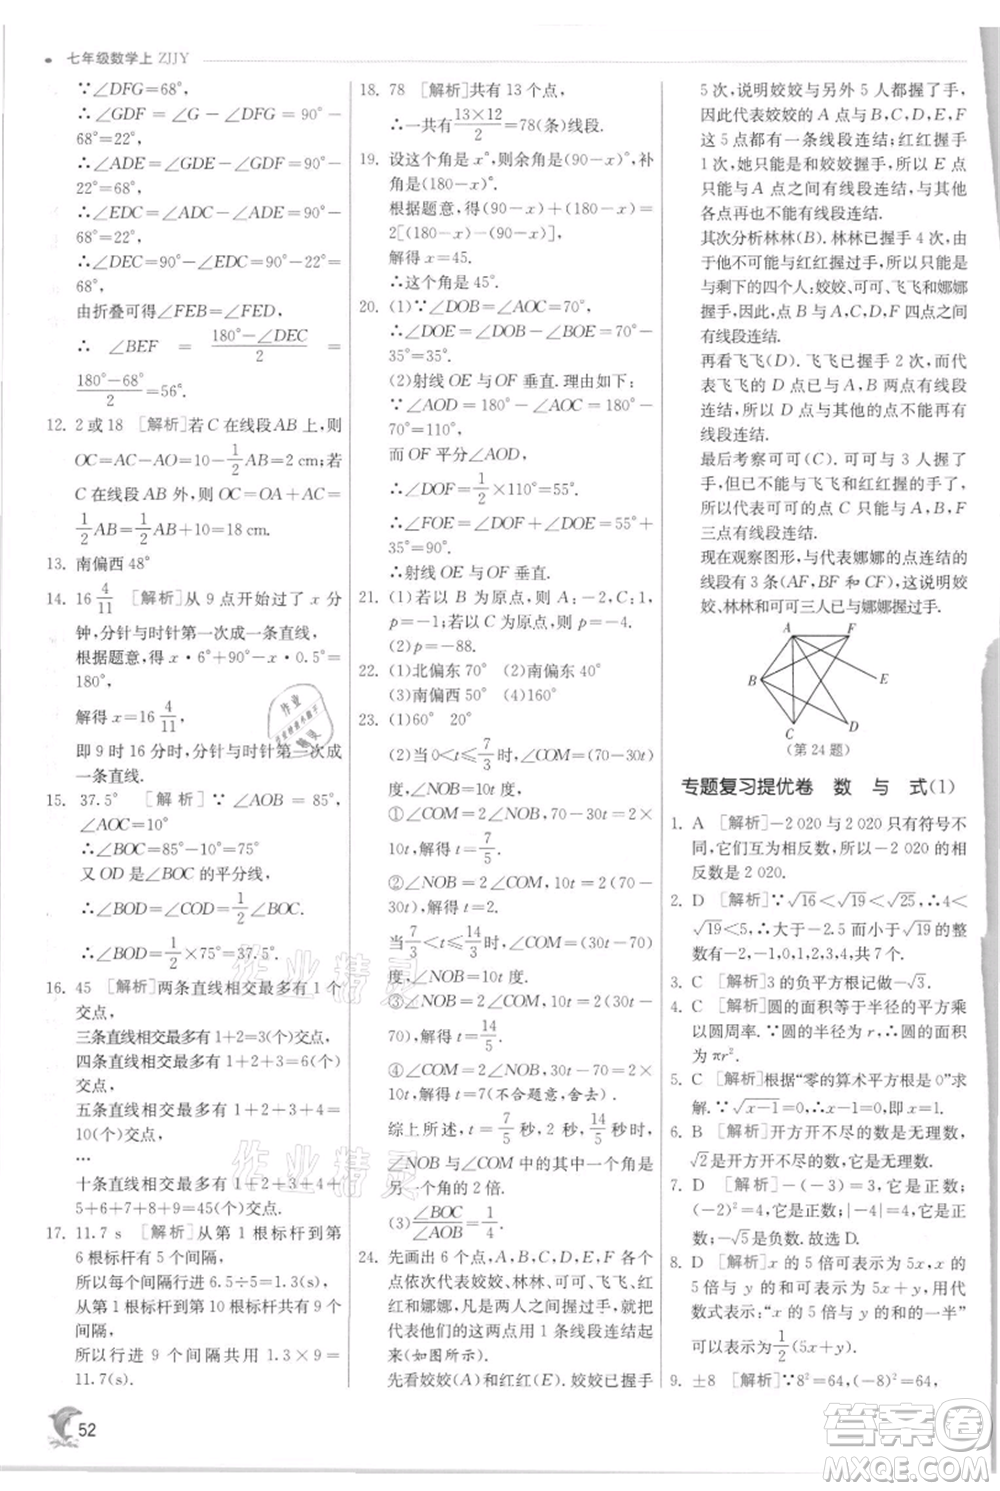 七年级数学上 ZJJY
∵∠DFG=68°,
∴∠GDF = ∠GFD = 90° -
68°=22°,
∴∠ADE=∠GDE-∠GDF=90-
22°=68°,
∴∠EDC=∠ADC-∠ADE=90°-
68°=22°,
∴∠DEC=90°-∠EDC=90°-22°=
68°,
由折叠可得∠FEB=∠FED,
∴ ∠BEF = (180°-∠DEC)/2 =
(180°-68°)/2=56°.
12. 2或18 [解析]若C在线段AB上,则
OC=AC-AO=10-1/2AB=2 cm;若
C在线段AB外,则OC=OA+AC=
1/2AB=1/2AB+10=18 cm.
13. 南偏西48°
14. 16 4/11 [解析]从9点开始过了x分
钟,分针与时针第一次成一条直线,
根据题意,得x·6°+90°-x·0.5°=
180°,
解得x=16 4/11,
即9时16分时,分针与时针第一次成
一条直线.
15. 37.5° [解析]∵∠AOB = 85°,
∠AOC=10°
∴∠BOC=85°-10°=75°
又OD是∠BOC的平分线,
∴∠BOD=∠COD=1/2∠BOC,
∴∠BOD=1/2×75°=37.5°.
16. 45 [解析]两条直线相交最多有1个
交点,
三条直线相交最多有1+2=3(个)交点,
四条直线相交最多有1+2+3=6(个)
交点,
五条直线相交最多有1+2+3+4=
10(个)交点,
…
十条直线相交最多有1+2+3+4+
5+6+7+8+9=45(个)交点.
17. 11.7 s [解析]从第1根标杆到第
6根标杆有5个间隔,
所以每个间隔行进6.5÷5=1.3(s),
从第1根标杆到第10根标杆共有9个
间隔,
所以行进9个间隔共用1.3×9=
11.7(s).
18. 78 [解析]共有13个点,
∴一共有(13×12)/2=78(条)线段.
19. 设这个角是x°,则余角是(90-x)°,补
角是(180-x)°,
根据题意,得(90-x)+(180-x)=
2[(180-x)-(90-x)],
解得x=45.
∴这个角是45°.
20. (1)∵∠DOB=∠AOC=70°,
∴∠DOE=∠DOB-∠BOE=70°-
35°=35°.
(2)射线OE与OF垂直.理由如下:
∵∠AOD=180°-∠AOC=180°-
70°=110°,
而OF平分∠AOD,
∴∠DOF=1/2×110°=55°.
∴∠FOE=∠DOF+∠DOE=55°+
35°=90°.
∴射线OE与OF垂直.
21. (1)若以B为原点,则A:-2,C:1,
p=-1;若以C为原点,p=-4.
(2)p=-88.
22. (1)北偏东70° (2)南偏东40°
(3)南偏西50° (4)160°
23. (1)60° 20°
(2)当0<t≤7/3时,∠COM=(70-30t)
度,∠NOB=10t度,
①∠COM=2∠NOB,70-30t=2×
10t,解得t=7/5.
②∠NOB=2∠COM,10t=2(70-
30t),解得t=2.
当7/3<t≤14/3时,∠COM=(30t-70)
度,∠NOB=10t度.
③∠NOB=2∠COM,10t=2(30t-
70),解得t=14/5.
④∠COM=2∠NOB,30t-70=2×
10t,解得t=7(不合题意,舍去).
综上所述,当t=7/5或2或14/5时,
∠NOB与∠COM中的一个角是另一
个角的2倍.
(3)∠BOC/∠AOB=1/4
24. 先画出6个点,A,B,C,D,E,F各个
点依次代表姣姣、林林、可可、飞飞、红
红和娜娜,凡是两个人握过手,就把
代表他们的这两点用1条线段连结起
来(如图所示).
先看姣姣(A)和红红(E).姣姣已握手
5次,说明姣姣与另外5人都握了手,
因此代表姣姣的A点与B,C,D,E,F
这5点都有一条线段连结;红红握手
1次,她只能是和姣姣握手,所以E点
与A点之间有线段连结,与其他
各点再也不能有线段连结.
其次分析林林(B).林林已握手4次,
由于他不可能与红红握过手,所以是
与剩下的四个人:姣姣、可可、飞飞和娜娜
握手,因此,B点与A,C,D,F四点之间
有线段连结.
再看飞飞(D).飞飞已握手2次,而代
表飞飞的D点已和A,B两点有线段
连结,所以D点与C,F不可能再有
线段连结.
最后考察可可(C).可可与3人握了
手,但不可能是与飞飞和红红握的手了,
所以代表可可的点C只能是与A,B,F
三点有线段连结.
现在观察图形,与代表娜娜的点连结的
线段有3条(AF,BF和CF),这说明姣
姣、林林和可可三人已与娜娜握过手.
A F
B E
C D
(第24题)
专题复习提优卷 数 与 式(1)
1. A [解析]-2 020与2 020只有符号不
同,它们互为相反数,所以-2 020的相
反数是2 020.
2. D [解析]∵√16<√19<√25,∴4<
√19<5,∴大于-2.5而小于√19的整
数有-2,-1,0,1,2,3,4,共7个.
3. C [解析]3的负平方根记做-√3.
4. C [解析]圆的面积等于半径的平方乘
以圆周率.∵圆的半径为r,∴圆的面积
为πr².
5. C [解析]根据“零的算术平方根是0”求
解.∵√(x-1)=0,∴x-1=0,即x=1.
6. B [解析]开方开不尽的数是无理数,
√2是开方开不尽的数,故是无理数.
7. D [解析]-(-3)=3,它是正数;
(-2)²=4,它是正数;|-5|=5,它是正数;
-√5是负数.故选D.
8. D [解析]x的5倍可以表示为5x,x的
5倍与y的和可以表示为5x+y,用代
数式表示:“x的5倍与y的和的一半”
可以表示为1/2(5x+y).
9. ±8 [解析]∵8²=64,(-8)²=64,
52
作业精灵
作业精灵
答案圈
MXQE.COM